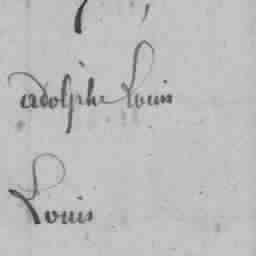 adolphe Louis
Louis